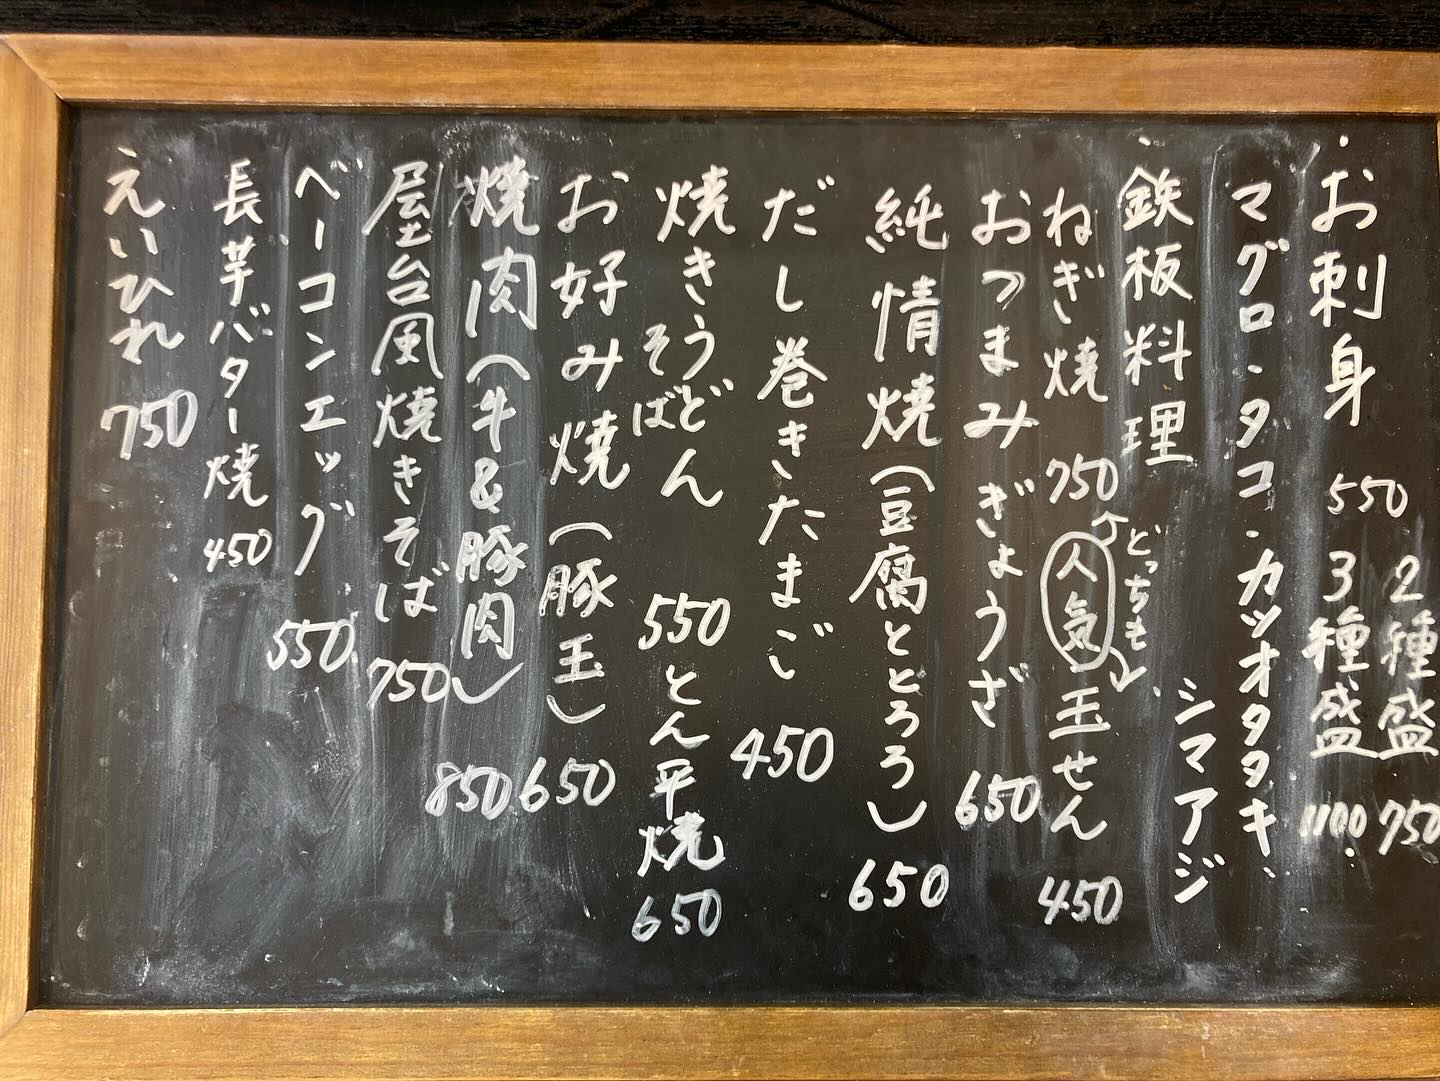 ・お刺身 550
2種盛 750
3種盛 1100
マグロ・タコ・カツオタタキ、
シマアジ
・鉄板料理
どっちも
ねぎ焼 750 人気 玉せん 450
おつまみぎょうざ 650
純情焼(豆腐ととろろ) 650
だし巻きたまご 450
焼きうどん
そば 550 とん平焼 650
お好み焼(豚玉) 650
焼肉(牛&豚肉) 850
屋台風焼きそば 750
ベーコンエッグ 550
長芋バター焼 450
えいひれ 750